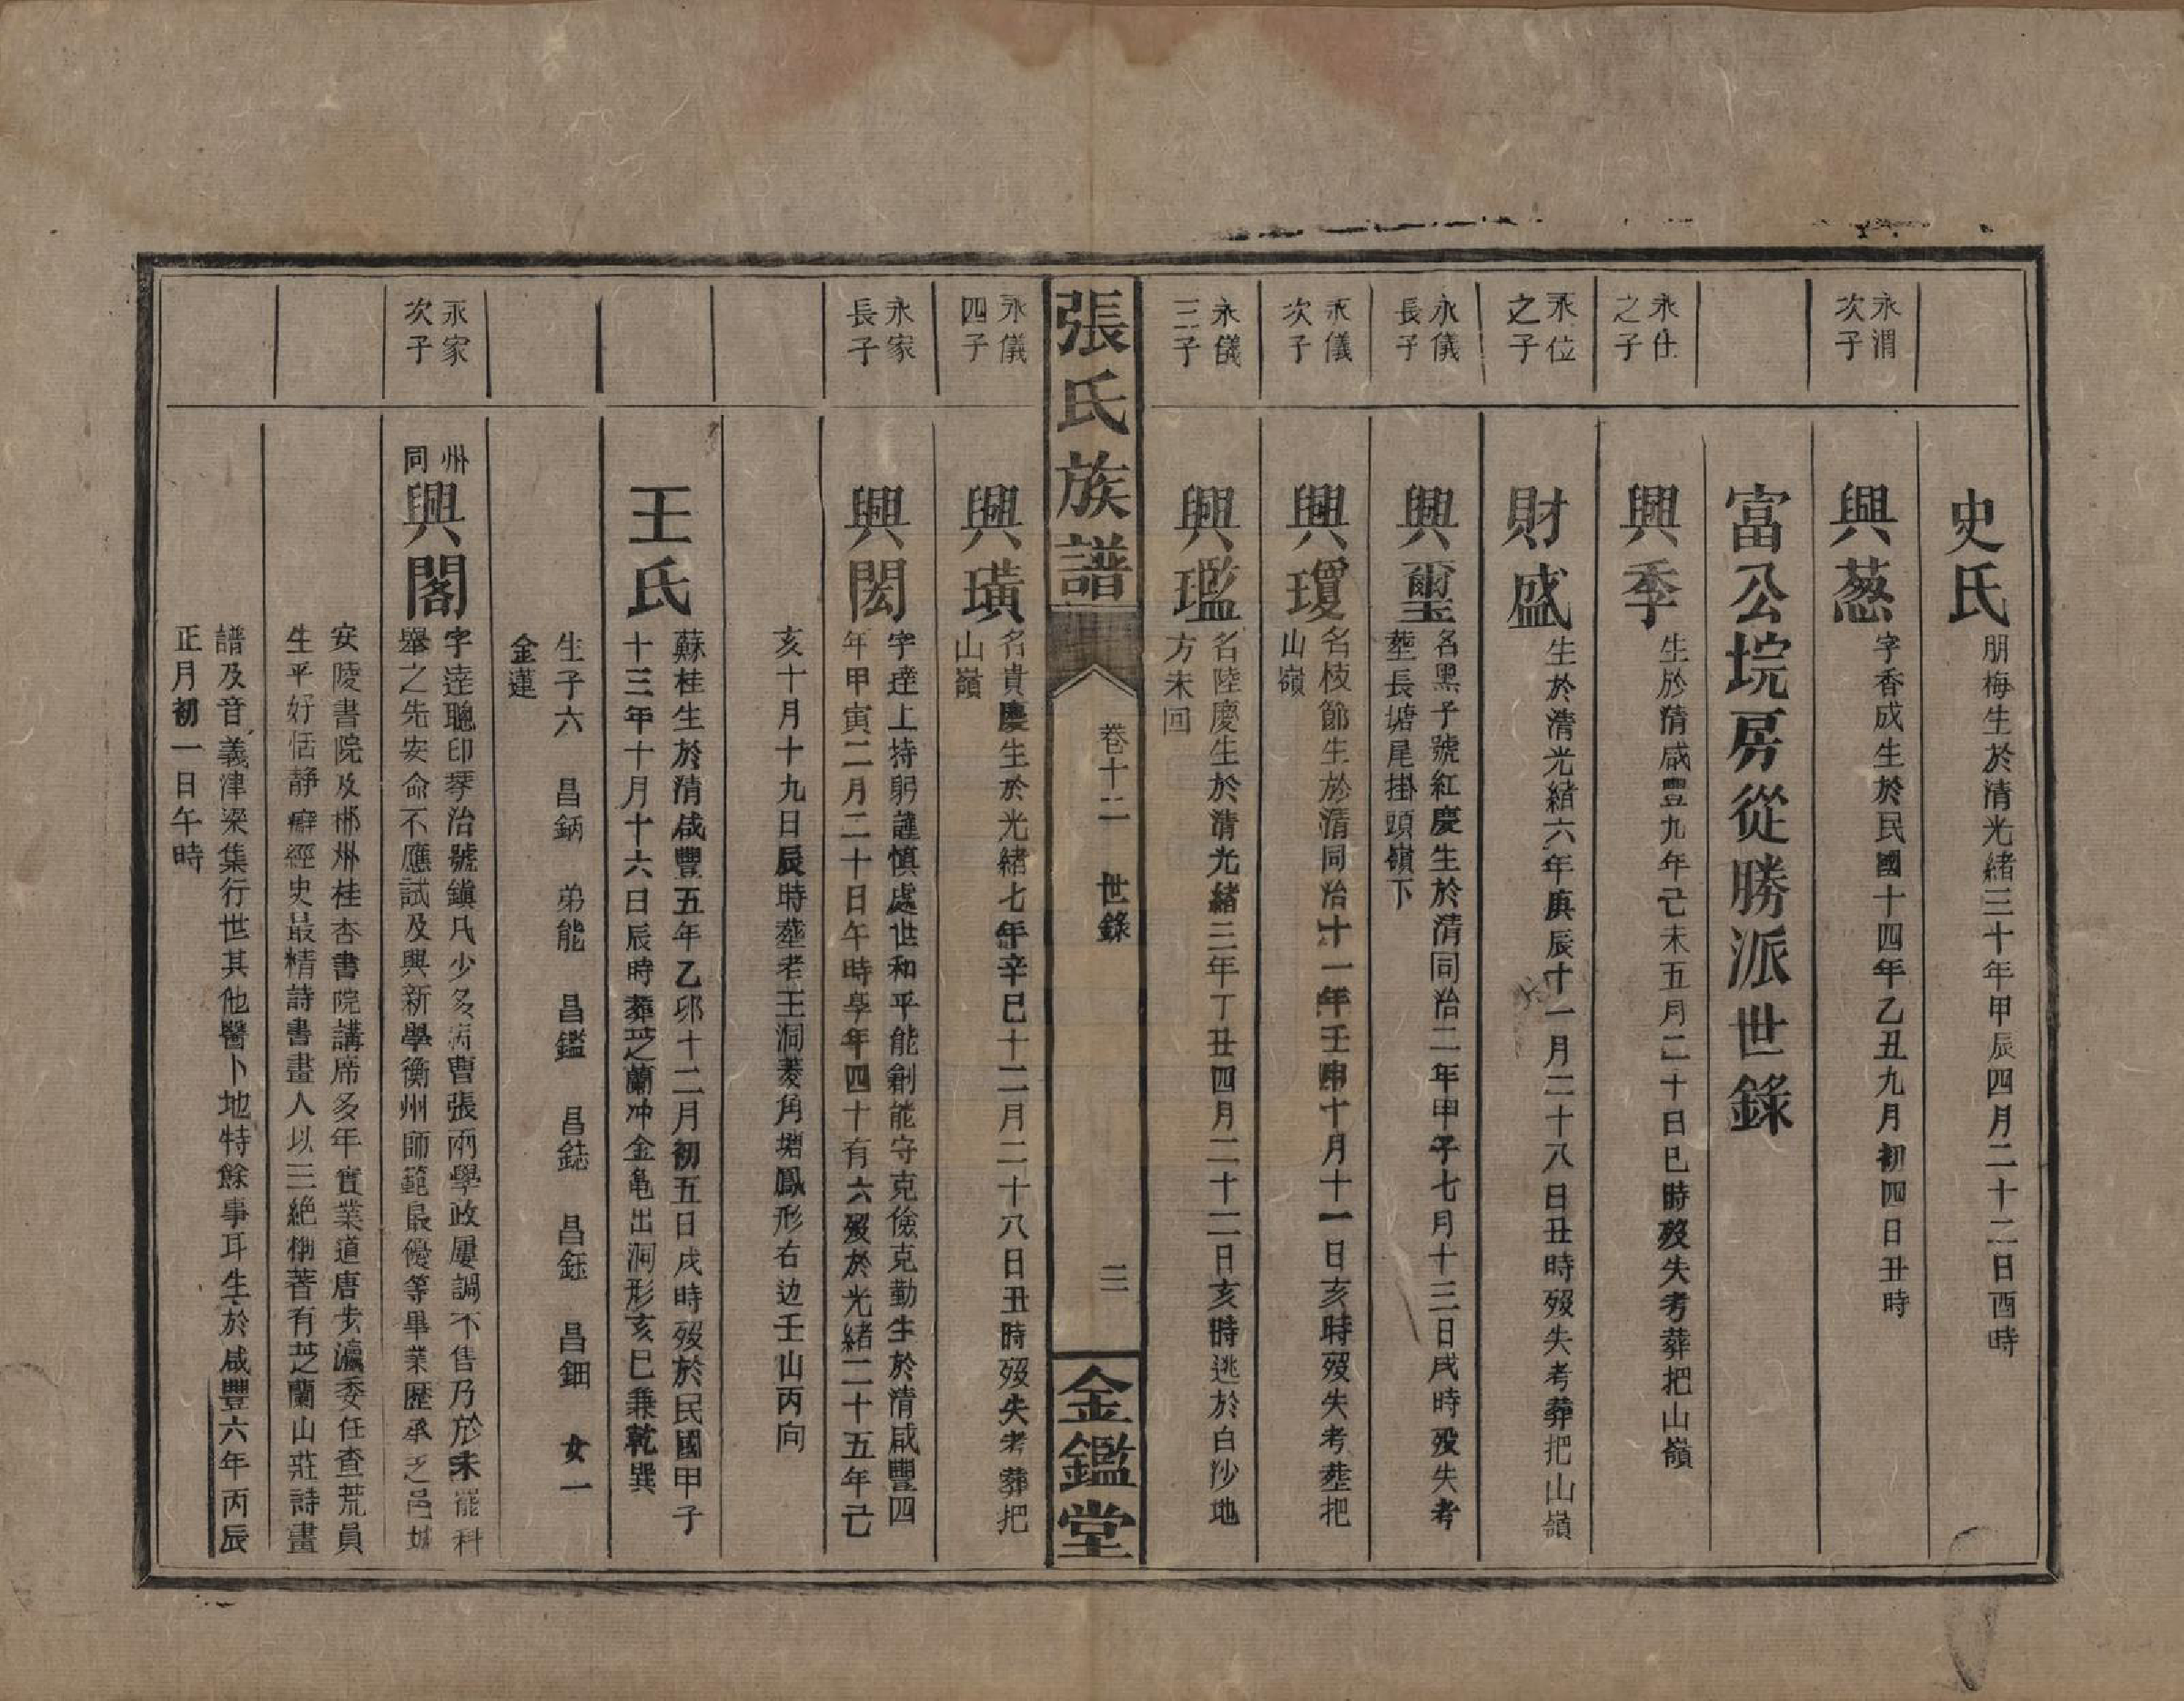 史氏
朋梅生於清光緒三十年甲辰四月二十二日酉時
永渭
次子
興蔥
字香成生於民國十四年乙丑九月初四日丑時
富公垸房從勝派世錄
永仕
之子
興季
生於清咸豐九年己未五月二十日巳時歿失考葬把山嶺
永位
之子
財盛
生於清光緒六年庚辰十一月二十八日丑時歿失考葬把山嶺
永儀
長子
興璽
名黑子號紅慶生於清同治二年甲子七月十三日戌時歿失考
塟長塘尾掛頭嶺下
永儀
次子
興瓊
名枝節生於清同治十一年壬申十月十一日亥時歿失考塟把
山嶺
永儀
三子
興璼
名陸慶生於清光緒三年丁丑四月二十二日亥時逃於白沙地
方未回
張氏族譜
卷十二 世錄
三
金鑑堂
永儀
四子
興璜
名貴慶生於光緒七年辛巳十二月二十八日丑時歿失考葬把
山嶺
永家
長子
興閎
字達上持躬謹慎處世和平能創能守克儉克勤生於清咸豐四
年甲寅二月二十日午時享年四十有六歿於光緒二十五年己
亥十月十九日辰時塟老王洞菱角塘鳳形右边壬山丙向
王氏
蘇桂生於清咸豐五年乙卯十二月初五日戌時歿於民國甲子
十三年十月十六日辰時葬芝蘭冲金龟出洞形亥巳兼乾巽
生子六 昌鈵 弟能 昌鑑 昌鋕 昌鈺 昌鈿 女一
金蓮
永家
次子
州
同
興閣
字達聰印琴治號鎮凡少多病曹張兩學政屢調不售乃於未罷科
舉之先安命不應試及興新學衡州師範最優等畢業歷承乏邑城
安陵書院及郴州桂杏書院講席多年實業道唐步瀛委任查荒員
生平好恬靜癖經史最精詩書畫人以三絶稱著有芝蘭山莊詩畫
譜及音義津梁集行世其他醫卜地特餘事耳生於咸豐六年丙辰
正月初一日午時